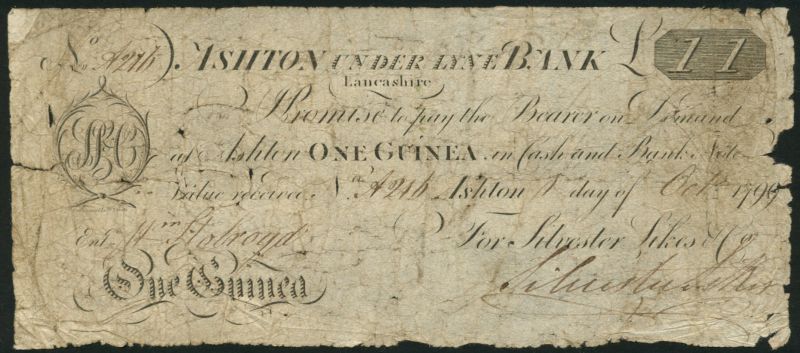 No A216 ASHTON UNDER LYNE BANK £ 1 1
Lancashire
I Promise to pay the Bearer on Demand
at Ashton ONE GUINEA in Cash and Bank Note
Value receiv'd No A216 Ashton 1 day of Octr 1799
Ent. Wm Holroyd For Silvester Sikes & Co
One Guinea Silvester Sikes